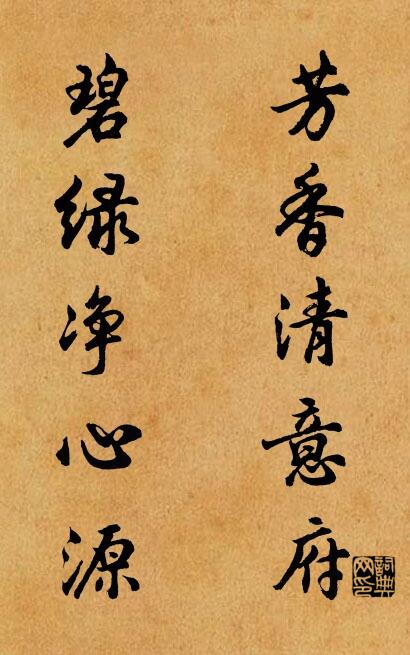 芳香清意府
碧绿净心源
詞典网印